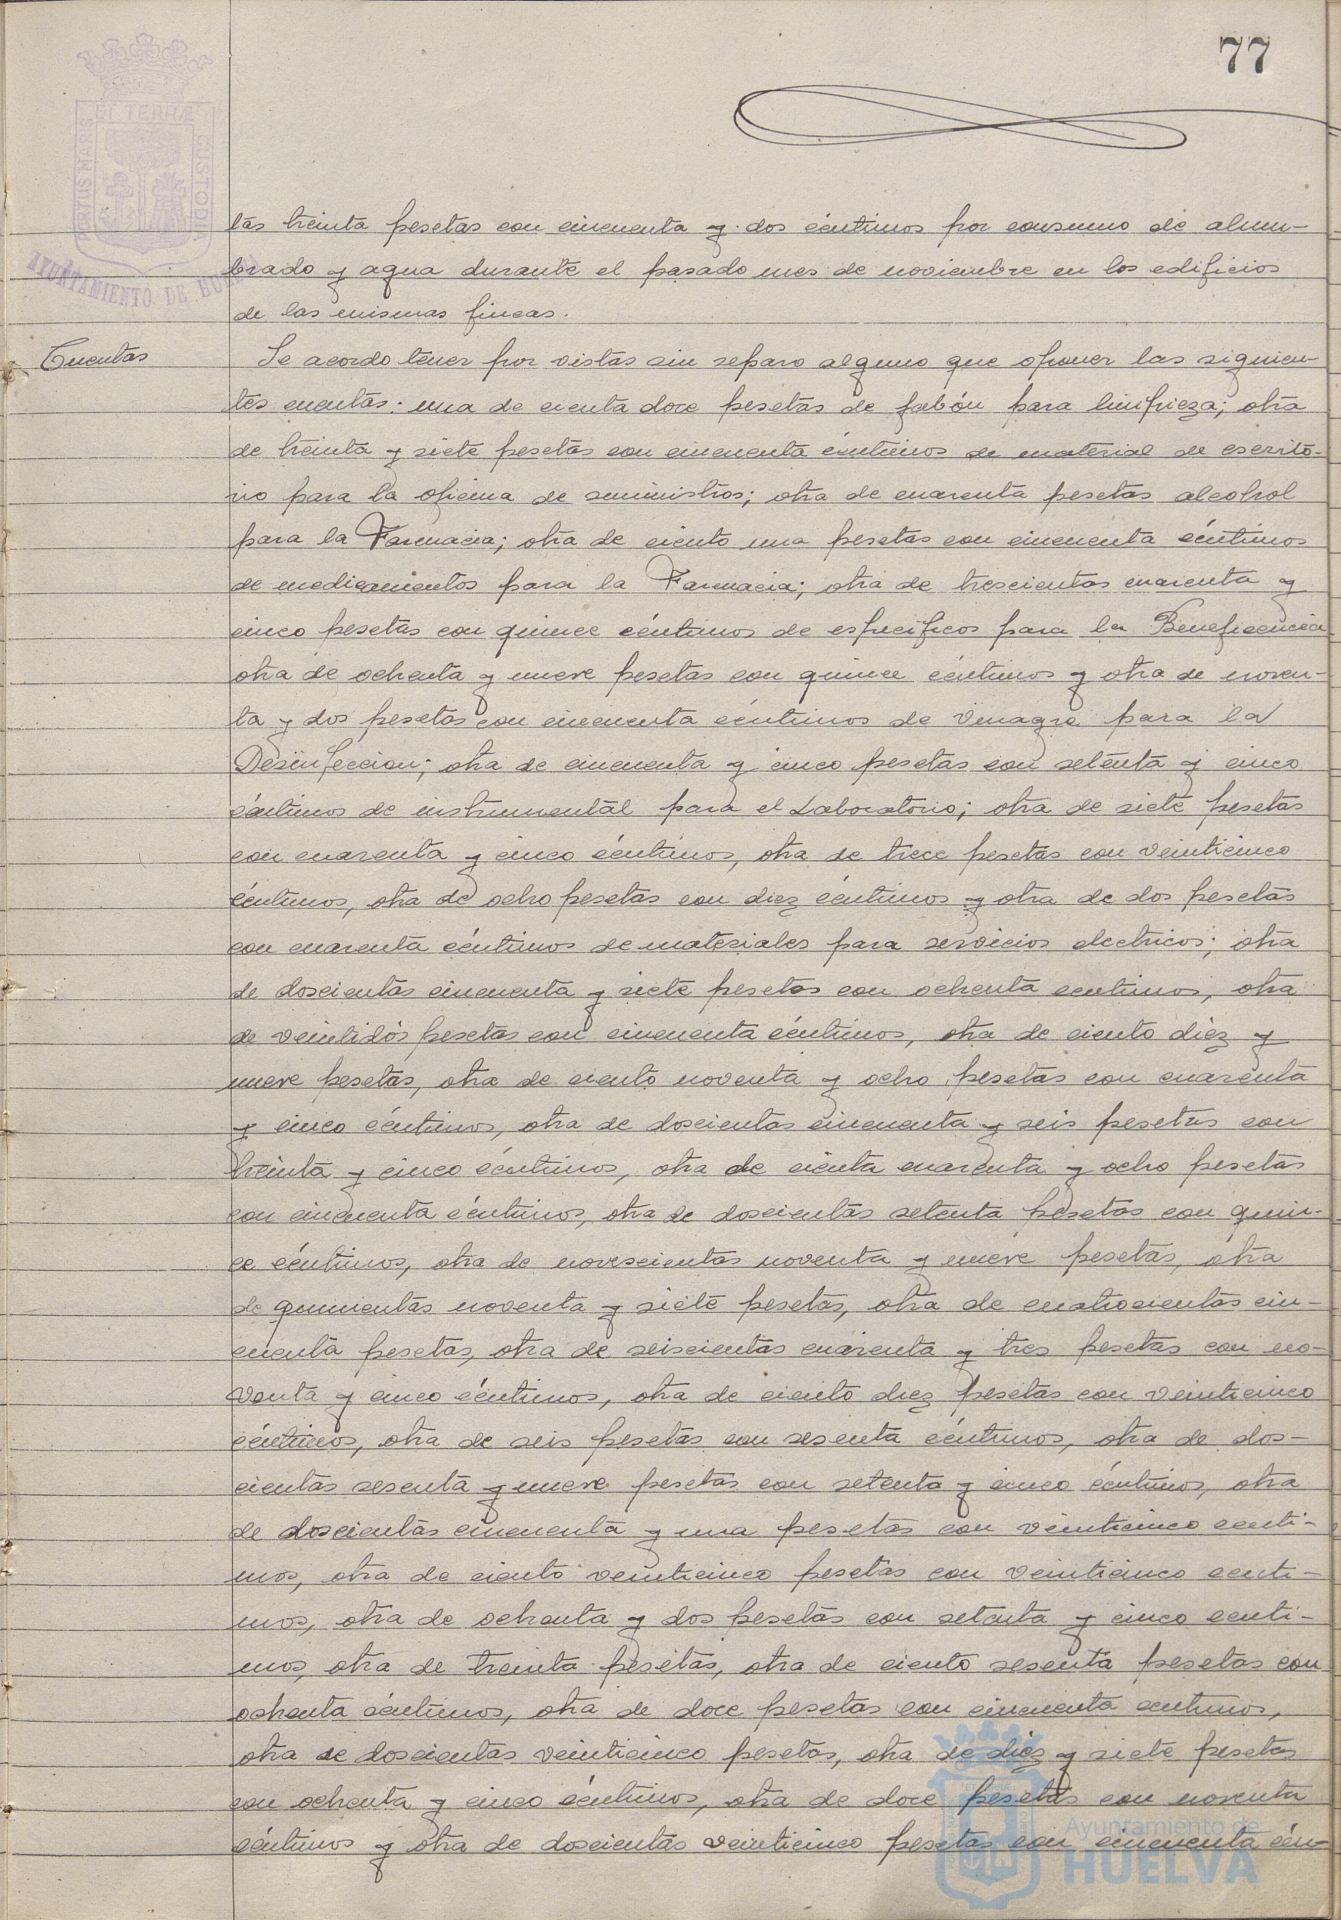 77
PORTUS MARIS ET TERRÆ CUSTODIA
AYUNTAMIENTO DE HUELVA
tas treinta pesetas con cincuenta y dos céntimos por consumo de alum-
brado y agua durante el pasado mes de noviembre en los edificios
de las mismas fincas.
Cuentas
Se acordo tener por vistas sin reparo alguno que oponer las siguien-
tes cuentas: una de cienta doce pesetas de jabón para limpieza; otra
de treinta y siete pesetas con cincuenta céntimos de material de escrito-
rio para la oficina de suministros; otra de cuarenta pesetas alcohol
para la Farmacia; otra de ciento una pesetas con cincuenta céntimos
de medicamientos para la Farmacia; otra de trescientas cuarenta y
cinco pesetas con quince céntimos de especificos para la Beneficencia
otra de ochenta y nueve pesetas con quince céntimos y otra de noven-
ta y dos pesetas con cincuenta céntimos de vinagre para la
Desinfeccion; otra de cincuenta y cinco pesetas con setenta y cinco
céntimos de instrumental para el Laboratorio; otra de siete pesetas
con cuarenta y cinco céntimos, otra de trece pesetas con veinticinco
céntimos, otra de ocho pesetas con diez céntimos y otra de dos pesetas
con cuarenta céntimos de materiales para servicios electricos; otra
de doscientas cincuenta y siete pesetas con ochenta centimos, otra
de veintidós pesetas con cincuenta céntimos, otra de ciento diez y
nueve pesetas, otra de ciento noventa y ocho pesetas con cuarenta
y cinco céntimos, otra de doscientas cincuenta y seis pesetas con
treinta y cinco céntimos, otra de cienta cuarenta y ocho pesetas
con cincuenta céntimos, otra de doscientas setenta pesetas con quin-
ce céntimos, otra de novescientas noventa y nueve pesetas, otra
de quinientas noventa y siete pesetas, otra de cuatrocientas cin-
cuenta pesetas, otra de seiscientas cuarenta y tres pesetas con no-
venta y cinco céntimos, otra de ciento diez pesetas con veinticinco
céntimos, otra de seis pesetas con sesenta céntimos, otra de dos-
cientas sesenta y nueve pesetas con setenta y cinco céntimos, otra
de doscientas cincuenta y una pesetas con veinticinco centi-
mos, otra de ciento veinticinco pesetas con veinticinco centi-
mos, otra de ochenta y dos pesetas con setenta y cinco centi-
mos, otra de treinta pesetas, otra de ciento sesenta pesetas con
ochenta céntimos, otra de doce pesetas con cincuenta centimos,
otra de doscientas veinticinco pesetas, otra de diez y siete pesetas
con ochenta y cinco céntimos, otra de doce pesetas con noventa
céntimos y otra de doscientas veinticinco pesetas con cincuenta cén-
Ayuntamiento de
HUELVA